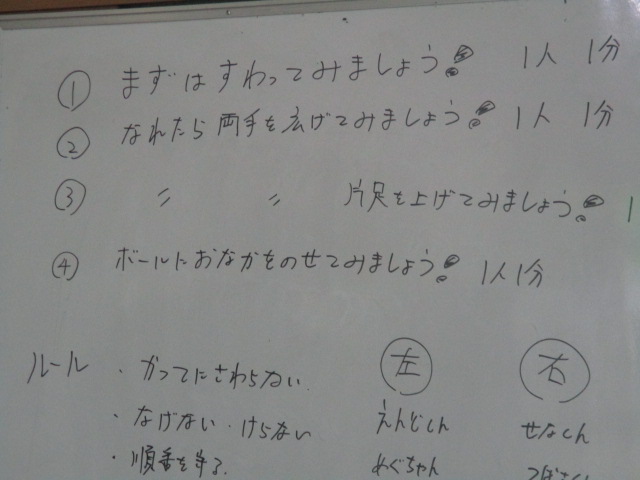 ① まずは すわってみましょう! 1人 1分
② なれたら 両手を広げてみましょう! 1人 1分
③ 〃 〃 片足を上げてみましょう! 1
④ ボールにおなかをのせてみましょう! 1人1分
ルール ・かってにさわらない 左 右
・なげない・けらない えんじくん せなくん
・順番を守る めぐちゃん つばさくん